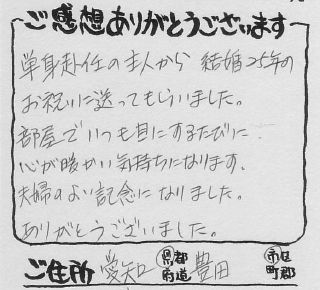 ご感想ありがとうございます
単身赴任の主人から 結婚25年の
お祝いに送ってもらいました。
部屋でいつも目にするたびに
心が暖かい気持ちになります。
夫婦のよい記念になりました。
ありがとうございました。
ご住所 愛知 県都府道 豊田 市区町郡